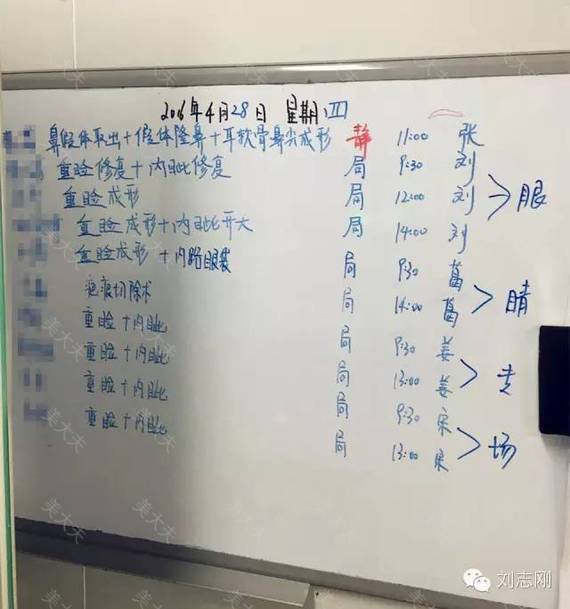 2016年4月28日 星期四
鼻假体取出+假体隆鼻+耳软骨鼻尖成形 静 11:00 张
重睑修复+内眦修复 局 9:30 刘
重睑成形 局 12:00 刘 >眼
重睑成形+内眦开大 局 14:00 刘
重睑成形+内路眼袋 局 9:30 葛
疤痕切除术 局 14:00 葛 >睛
重睑+内眦 局 9:30 姜
重睑+内眦 局 13:00 姜 >专
重睑+内眦 局 9:30 宋
重睑+内眦 局 13:00 宋 >场
美大夫
刘志刚